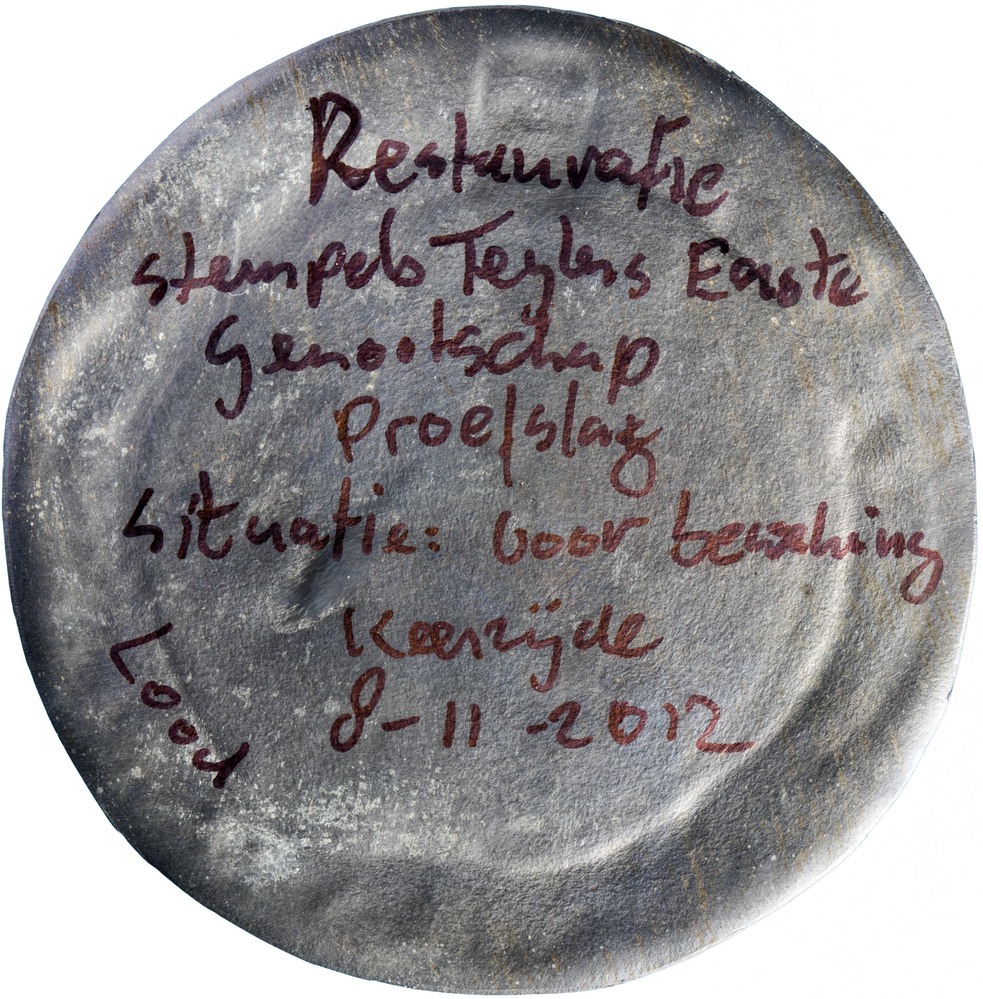 Restauratie
stempels Teylers Eerste
Genootschap
Proefslag
situatie: voor bewerking
Keerzijde
8-11-2012
Lood